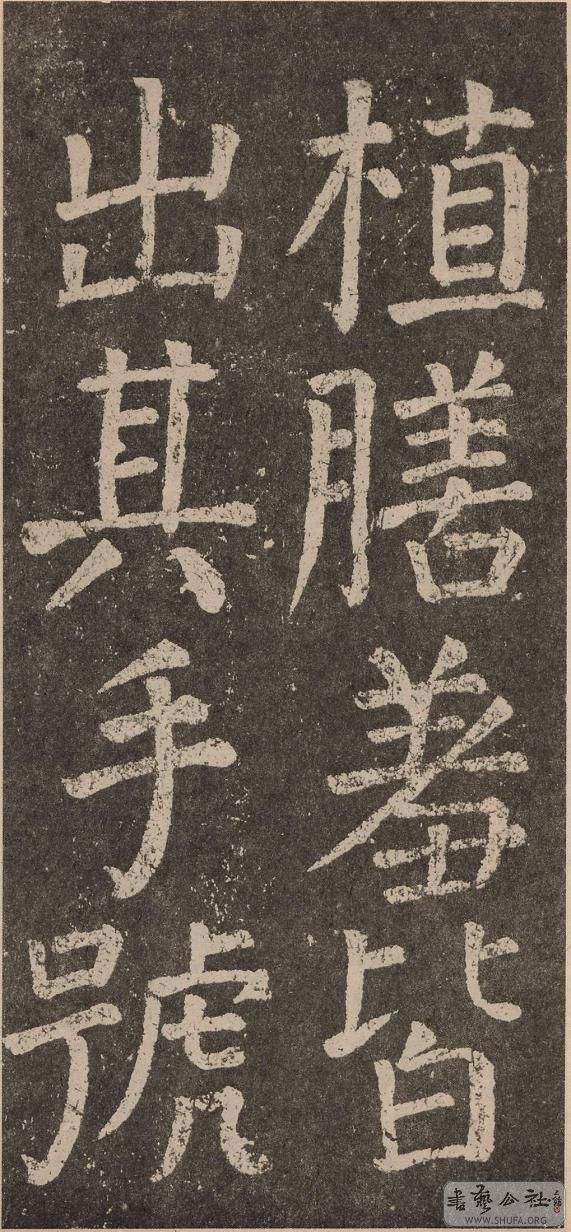 植膳羞皆
出其手號
書藝公社
WWW.SHUFA.ORG